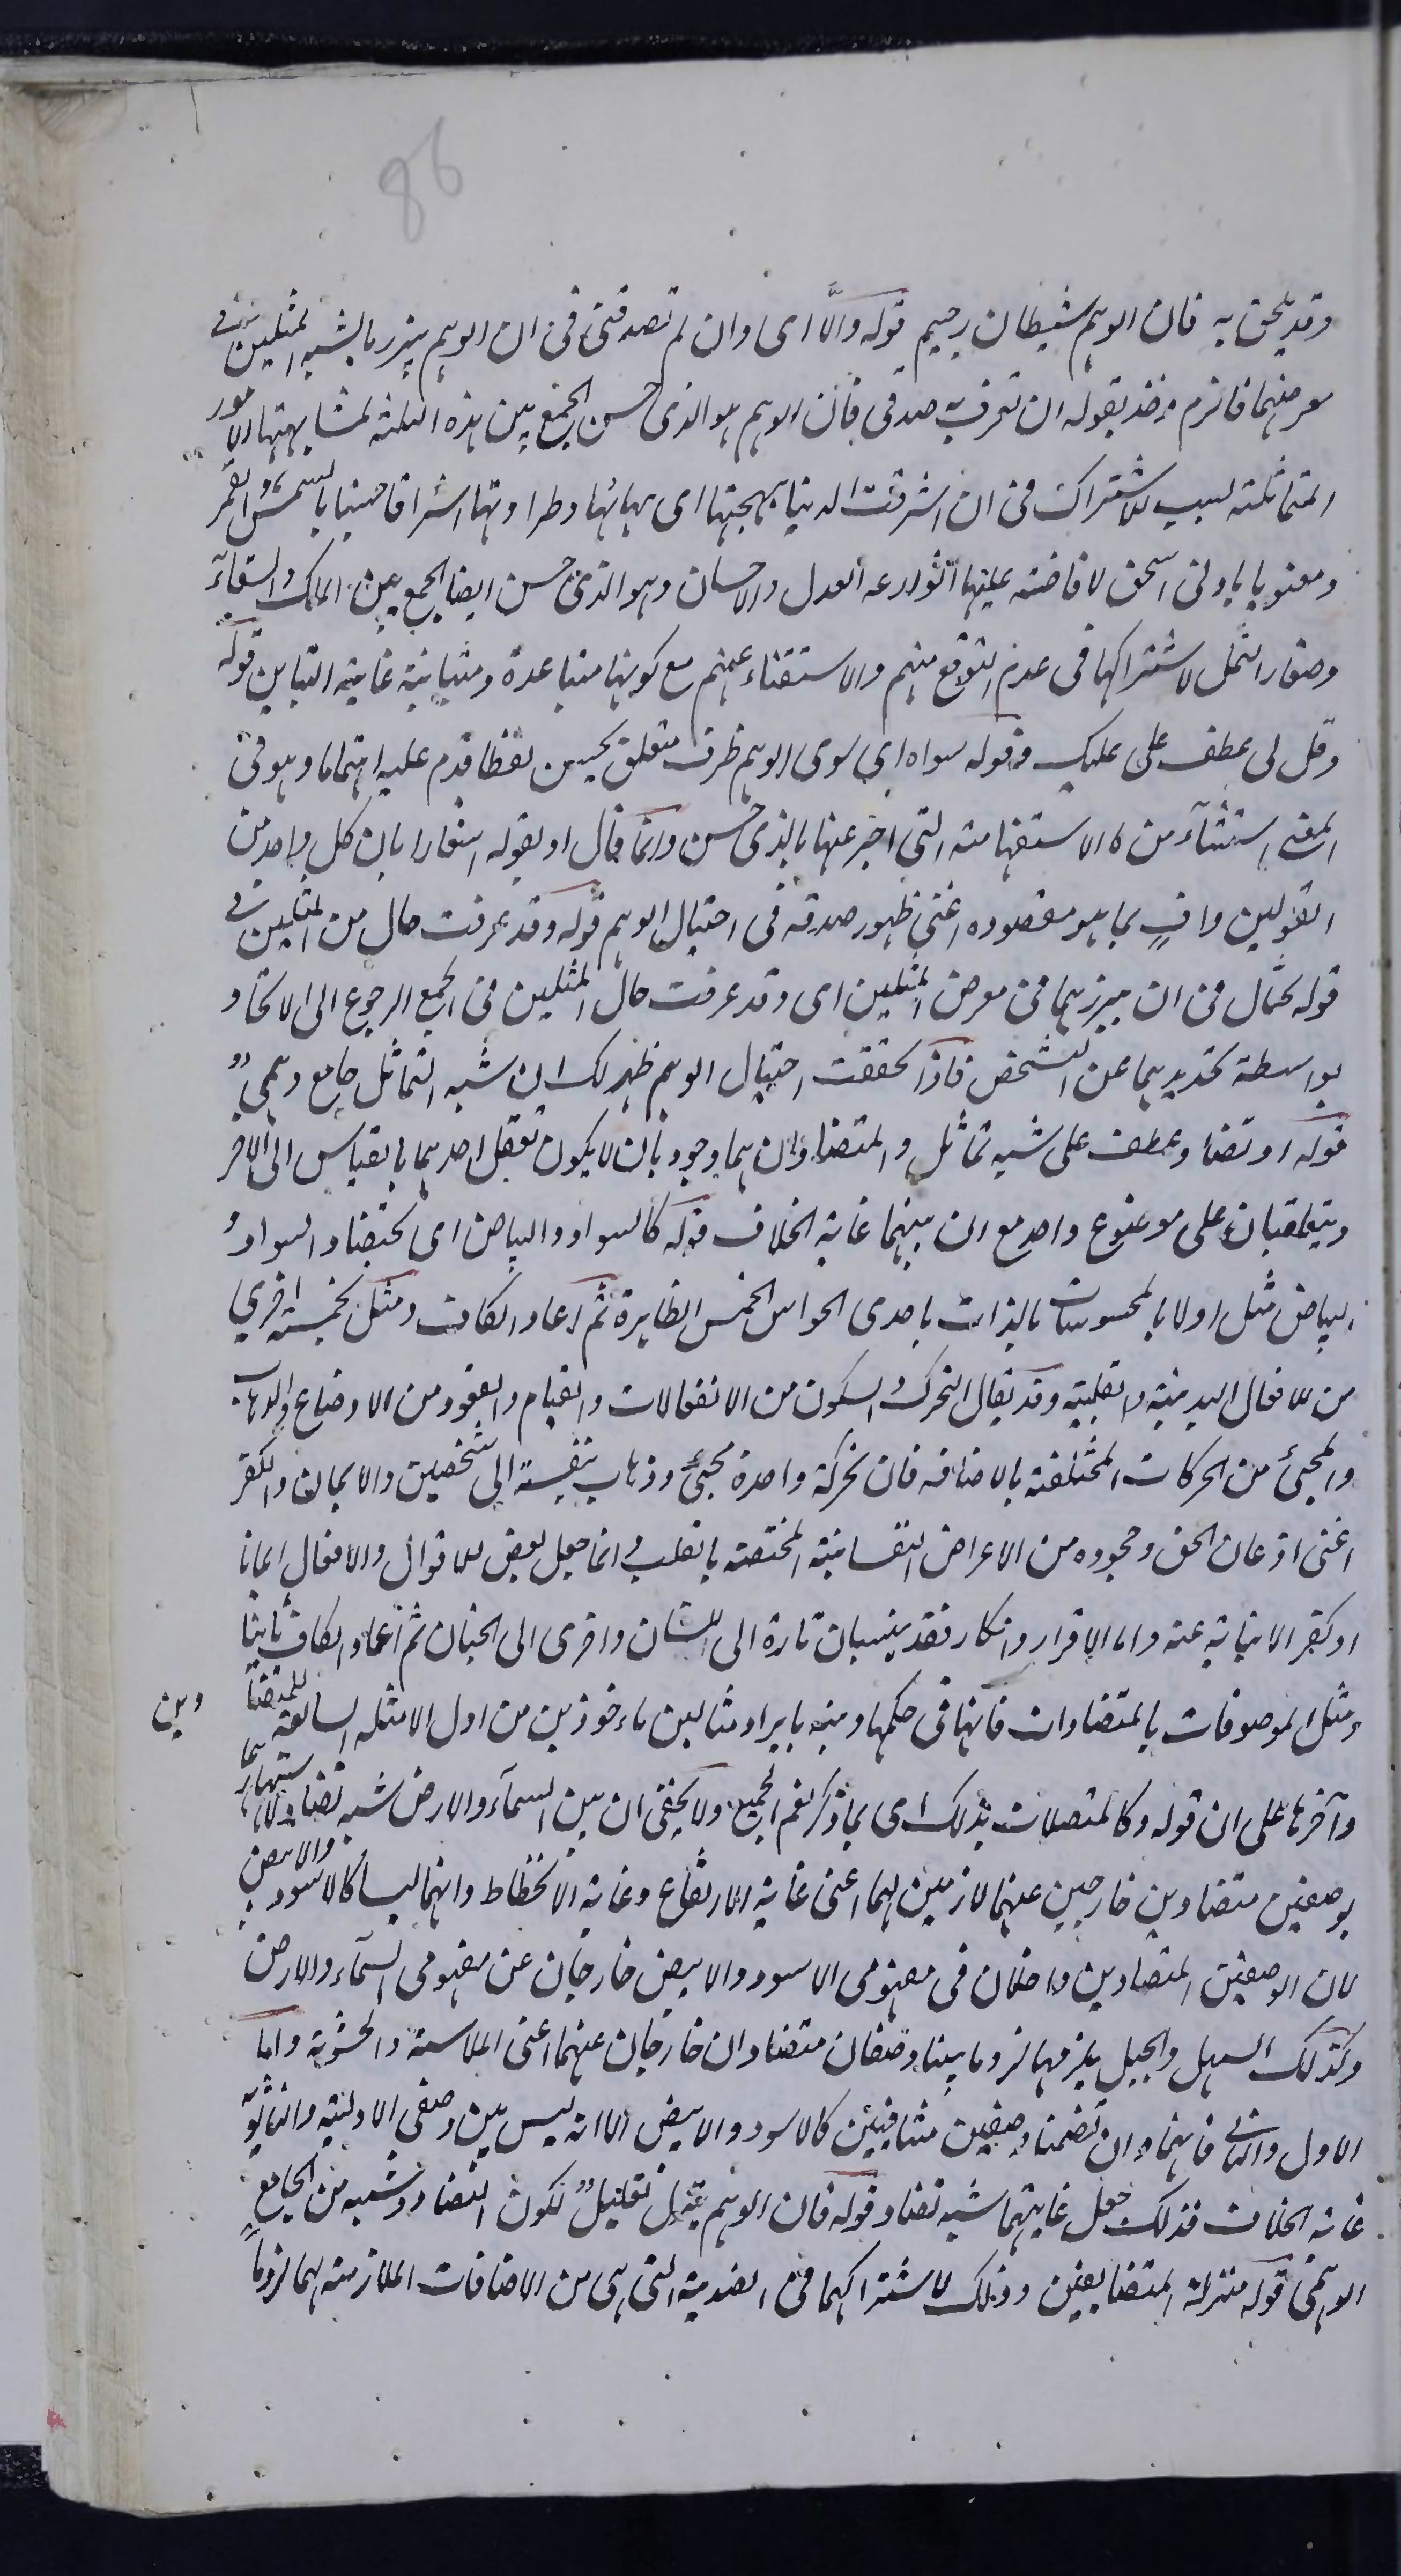 86
وقد يلحق به فان الوهم شيطان رجيم قوله والّا اى وان لم تصدقنى فى ان الوهم يبرز ما يشبه المثلين فى
معرضهما فاخذ بقوله ان تعرف صدقى فان الوهم هو الذى حسن الجمع بين هذه الثلثة لمشابهتها الامور
المتماثلة بسبب الاشتراك فى ان اشرقت الدنيا ببهجتها اى بهائها وطراوتها اشراقا حسيا بالشمس والقمر
ومعنويا بابى اسحق لافاضته عليها انوار عه العدل والاحسان وهو الذى حسن ايضا الجمع بين الماك والسقاء
وصغار النمل لاشتراكها فى عدم التوقع منهم والاستغناء عنهم مع كونها متباعدة ومتباينة غاية التباين قوله
وقل لى عطف على عليك وقوله سواه اى سوى الوهم ظرف متعلق بحسن لفظا قدم عليه اهتماما وهو فى
المعنى استثناء من ما الاستفهامية التى اخبر عنها بالذى حسن وانما قال او بقوله اشعارا بان كل واحد من
القولين وافٍ بما هو مقصوده اعنى ظهور صدقه فى احتيال الوهم قوله وقد عرفت حال من المثلين فى
قوله يحتال فى ان يبرزهما فى معرض المثلين اى وقد عرفت حال المثلين فى الجمع الرجوع الى الاتحاد
بواسطة تجريدهما عن التشخص فاذا تحققت احتيال الوهم ظهر لك ان شبه التماثل جامع وهمى
قوله او تضاد عطف على شبه تماثل والمتضادان هما وجوديان لا يكون تعقل احدهما بالقياس الى الآخر
ويتعاقبان على موضوع واحد مع ان بينهما غاية الخلاف قوله كالسواد والبياض اى كتضاد السواد و
البياض مثل اولا بالمحسوسات بالذات باحدى الحواس الخمس الظاهرة ثم اعاد الكاف ومثل بخمسة اخرى
من الافعال البدنية والقلبية وقد يقال التحرك والسكون من الانفعالات والقيام والقعود من الاوضاع والذهاب
والمجئ من الحركات المختلفة بالاضافة فان حركة واحدة مجئ وذهاب بنسبة الى شخصين والايمان والكفر
اعنى اذعان الحق وجحوده من الاعراض النفسانية المختصة بالقلب انما جعل بعض الاقوال والافعال ايمانا
او كفرا لانبائه عنه واما الاقرار وانكار فقد ينسبان تارة الى اللسان واخرى الى الجنان ثم اعاد الكاف ثانيا
ومثل الموصوفات بالمتضادات فانها فى حكمها ومنه بايراد مثالين ماخوذين من اول الامثلة السابقة للمتضا
دين
وآخرها على ان قوله وكالمتصلات بذلك اى بما ذكر نعم الجميع ولا يخفى ان بين السماء والارض شبه تضاد لاشتهارهما
بوصفين متضادين خارجين عنهما لازمين لهما اعنى غاية الارتفاع وغاية الانحطاط وانهما ليسا كالاسود والابيض
لان الوصفين المتضادين داخلان فى مفهومى الاسود والابيض خارجان عن مفهومى السماء والارض
وكذلك السهل والجبل يلزمهما لزوما بينا وصفان متضادان خارجان عنهما اعنى الملاسة والخشونة واما
الاول والثانى فانهما وان تضمنا وصفين متنافيين كالاسود والابيض الا انه ليس بين وصفى الاولية والثانوية
غاية الخلاف فذلك جعل غايتهما شبه تضاد قوله فان الوهم ينزل تعليل لكون التضاد وشبهه من الجامع
الوهمى قوله منزلة المتضايفين وذلك لاشتراكهما فى الضدية التى هى من الاضافات الملازمة لهما لزوما